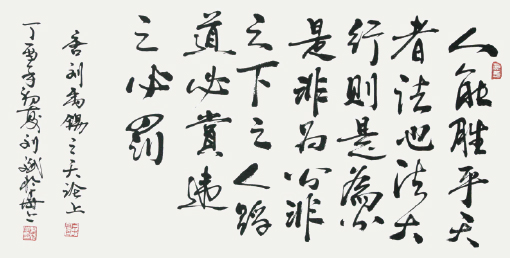 人能胜乎天
者法也法大
行则是為公
是非为公非
天下之人蹈
道必賞違
之必罚
唐刘禹锡之天论上
丁酉年初夏刘斌於海上